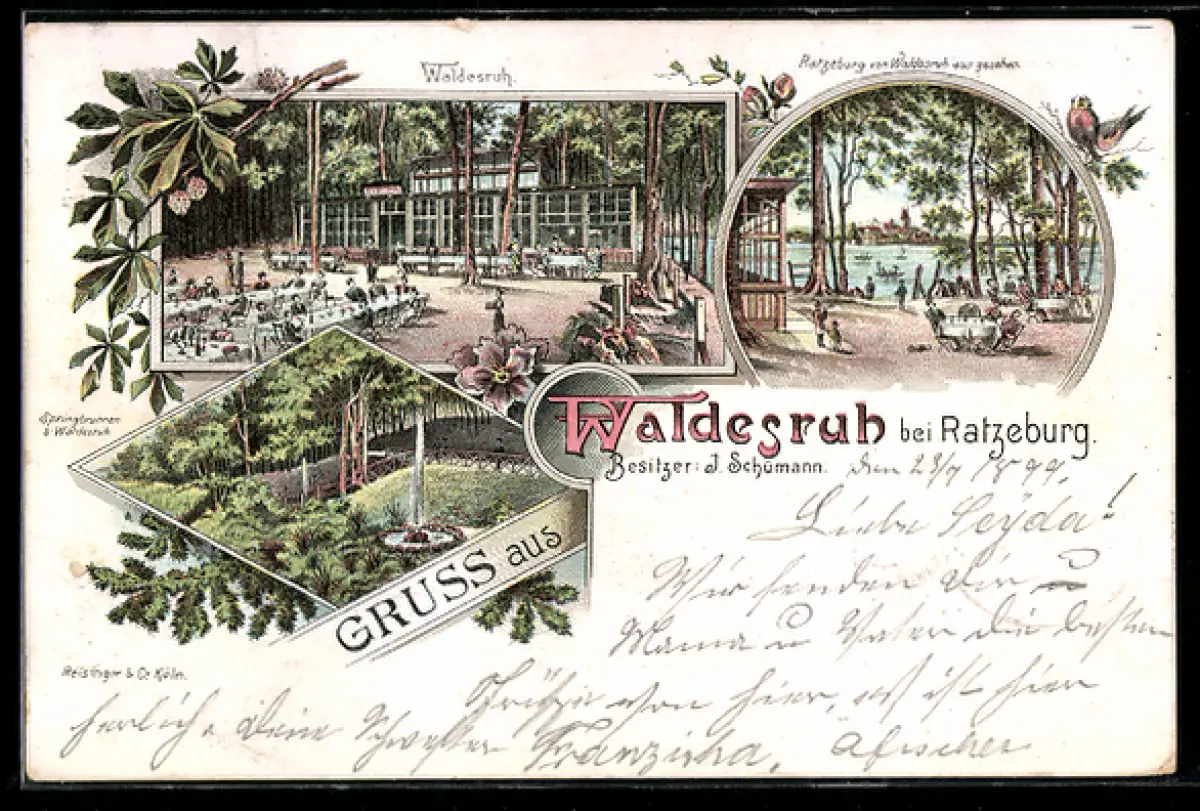 Waldesruh.
Ratzeburg von Waldesruh aus gesehen.
Springbrunnen
b. Waldesruh
GRUSS aus
Waldesruh bei Ratzeburg.
Besitzer: J. Schümann.
den 23/7 1899.
Liebe Seyda!
Wir senden Dir u
Mama u Vater die besten
Grüße von hier, es ist hier
herlich. Deine Schwester Franziska,
Reisinger & Co Köln.